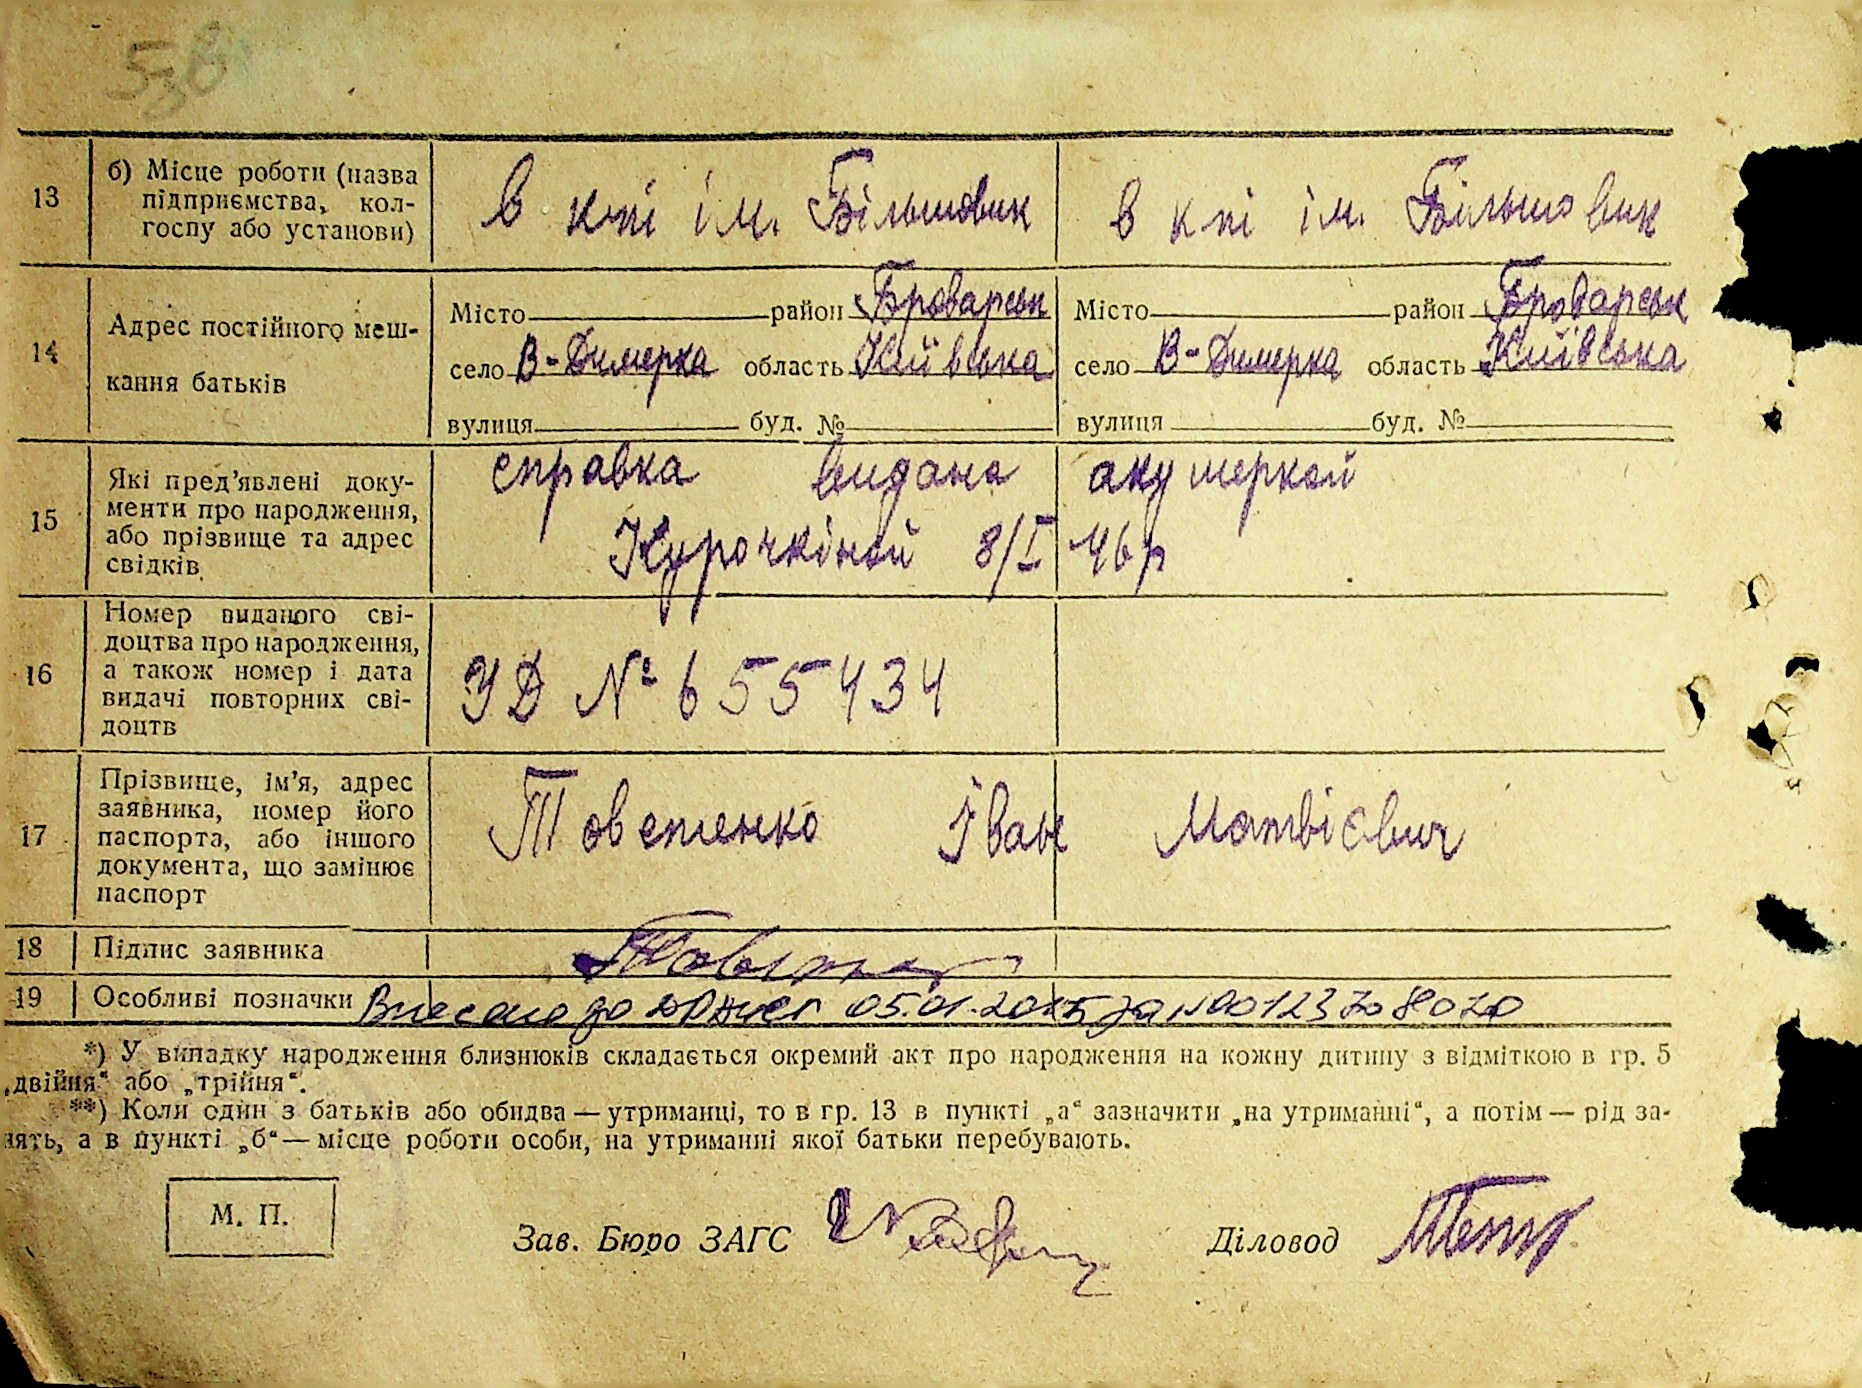 53в
13 б) Місце роботи (назва підприємства, колгоспу або установи) в кпі ім. Більшовик в кпі ім. Більшовик
14 Адрес постійного мешкання батьків
Місто район Броварськ Місто район Броварськ
село В-Димерка область Київська село В-Димерка область Київська
вулиця буд. № вулиця буд. №
15 Які пред'явлені документи про народження, або прізвище та адрес свідків
справка видана акушеркой
Курочкіной 8/I 46 р
16 Номер виданого свідоцтва про народження, а також номер і дата видачі повторних свідоцтв
УД № 655434
17 Прізвище, ім'я, адрес заявника, номер його паспорта, або іншого документа, що замінює паспорт
Товстенко Іван Матвієвич
18 Підпис заявника
19 Особливі позначки Внесено до 05.01.2015 за №00123708020
*) У випадку народження близнюків складається окремий акт про народження на кожну дитину з відміткою в гр. 5
„двійня“ або „трійня“.
**) Коли один з батьків або обидва — утриманці, то в гр. 13 в пункті „а“ зазначити „на утриманні“, а потім — рід за-
нять, а в пункті „б“ — місце роботи особи, на утриманні якої батьки перебувають.
М. П.
Зав. Бюро ЗАГС Діловод